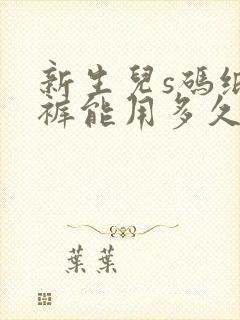 新生兒s碼紙
褲能用多久
葉葉